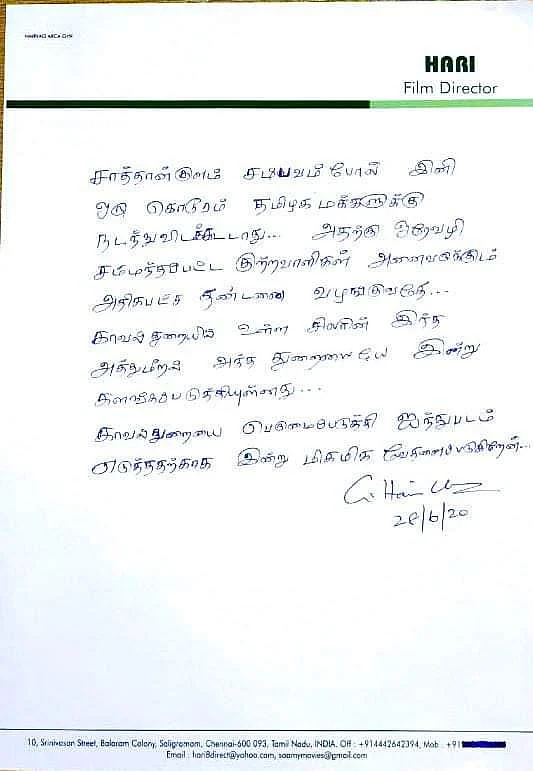 HARI
Film Director
சாத்தான்குளம் சம்பவம்போல் இனி
ஒரு கொடூரம் தமிழக மக்களுக்கு
நடந்துவிடக்கூடாது... அதற்கு ஒரேவழி
சம்மந்தப்பட்ட குற்றவாளிகள் அனைவருக்கும்
அதிகபட்ச தண்டனை வழங்குவதே...
காவல்துறையில் உள்ள சிலரின் இந்த
அத்துமீறல் அந்த துறையையே இன்று
களங்கப்படுத்தியுள்ளது...
காவல்துறையை பெருமைபடுத்தி ஐந்துபடம்
எடுத்ததற்காக இன்று மிகமிக வேதனைப்படுகிறேன்...
28/6/20
10, Srinivasan Street, Balaram Colony, Saligramam, Chennai-600 093, Tamil Nadu, INDIA. Off : +914442642394, Mob : +91
Email : hari8direct@yahoo.com, saamymovies@gmail.com